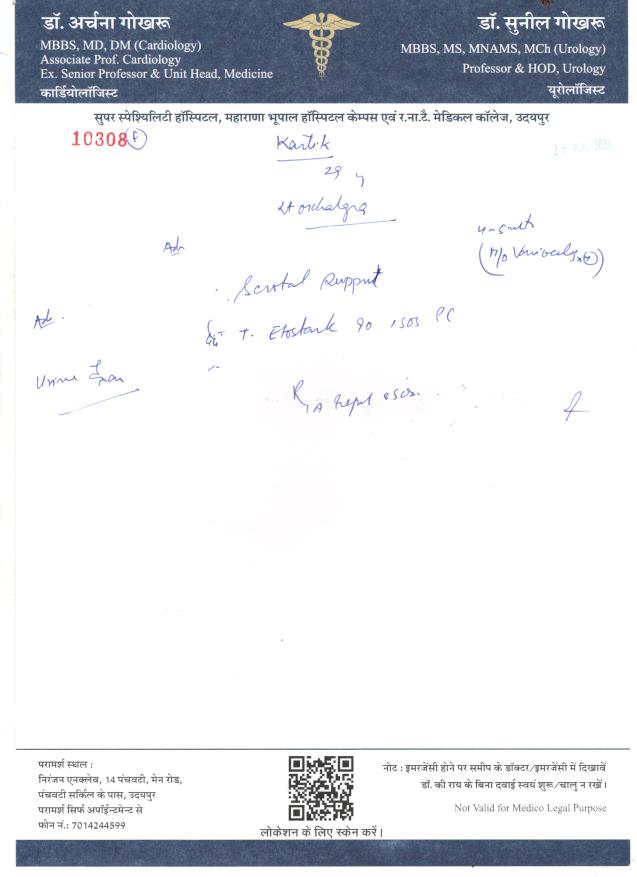 डॉ. अर्चना गोखरू
MBBS, MD, DM (Cardiology)
Associate Prof. Cardiology
Ex. Senior Professor & Unit Head, Medicine
कार्डियोलॉजिस्ट
डॉ. सुनील गोखरू
MBBS, MS, MNAMS, MCh (Urology)
Professor & HOD, Urology
यूरोलॉजिस्ट
सुपर स्पेश्यिलिटी हॉस्पिटल, महाराणा भूपाल हॉस्पिटल केम्पस एवं र.ना.टै. मेडिकल कॉलेज, उदयपुर
10308
Kartik
29 y
Lt orchalgia
Adv
Scrotal support
Adv.
T. 90 1 SOS PC
Urine
परामर्श स्थल :
निरंजन एनक्लेव, 14 पंचवटी, मेन रोड,
पंचवटी सर्किल के पास, उदयपुर
परामर्श सिर्फ अपॉईन्टमेन्ट से
फोन नं.: 7014244599
लोकेशन के लिए स्केन करें।
नोट : इमरजेंसी होने पर समीप के डॉक्टर/इमरजेंसी में दिखावें
डॉ. की राय के बिना दवाई स्वयं शुरू/चालु न रखें।
Not Valid for Medico Legal Purpose